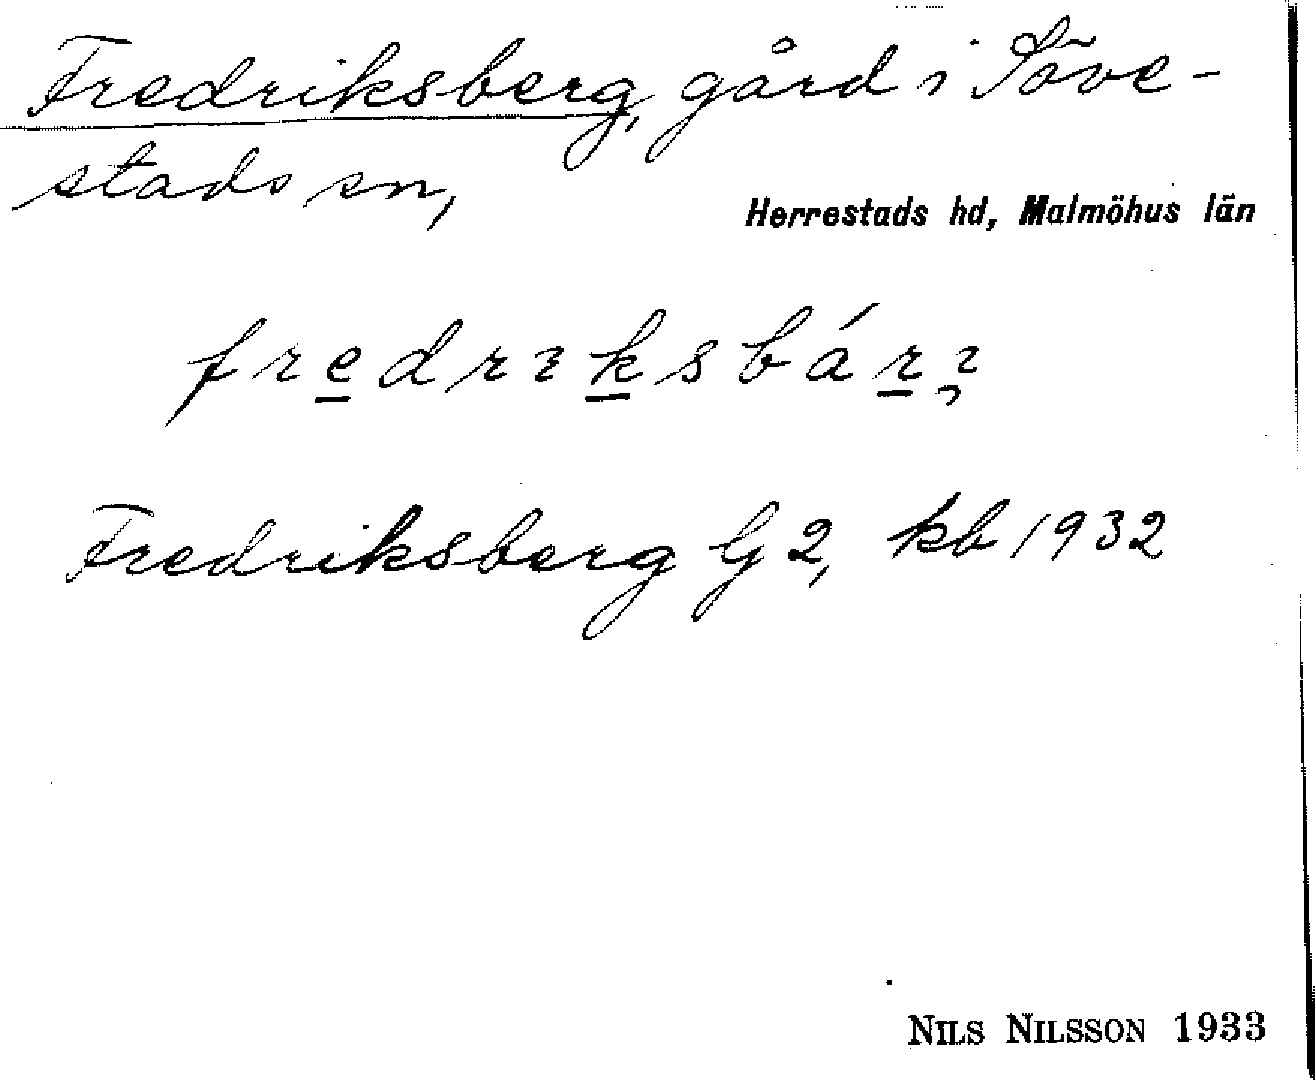 Fredriksberg, gård i Söve-
stads sn,
Herrestads hd, Malmöhus län
fredrıksbárɂ
Fredriksberg G 2, kb 1932
NILS NILSSON 1933